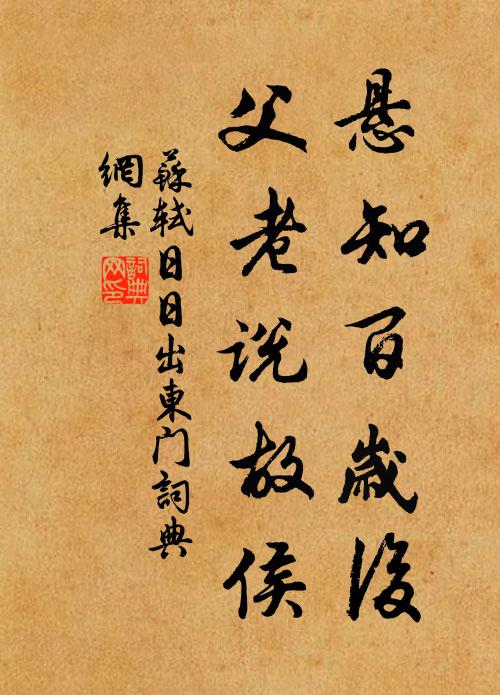 悬知百歲後
父老说故侯
蘇軾日日出東门詞典
網集
詞典
网印